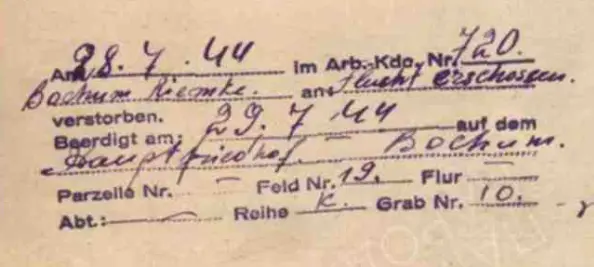 Am 28.7.44 im Arb.-Kdo. Nr. 720.
Bochum Riemke. an: Flucht erschossen.
verstorben.
Beerdigt am: 29.7 44 auf dem
Hauptfriedhof. Bochum.
Parzelle Nr. — Feld Nr. 19. Flur —
Abt.: — Reihe K. Grab Nr. 10.